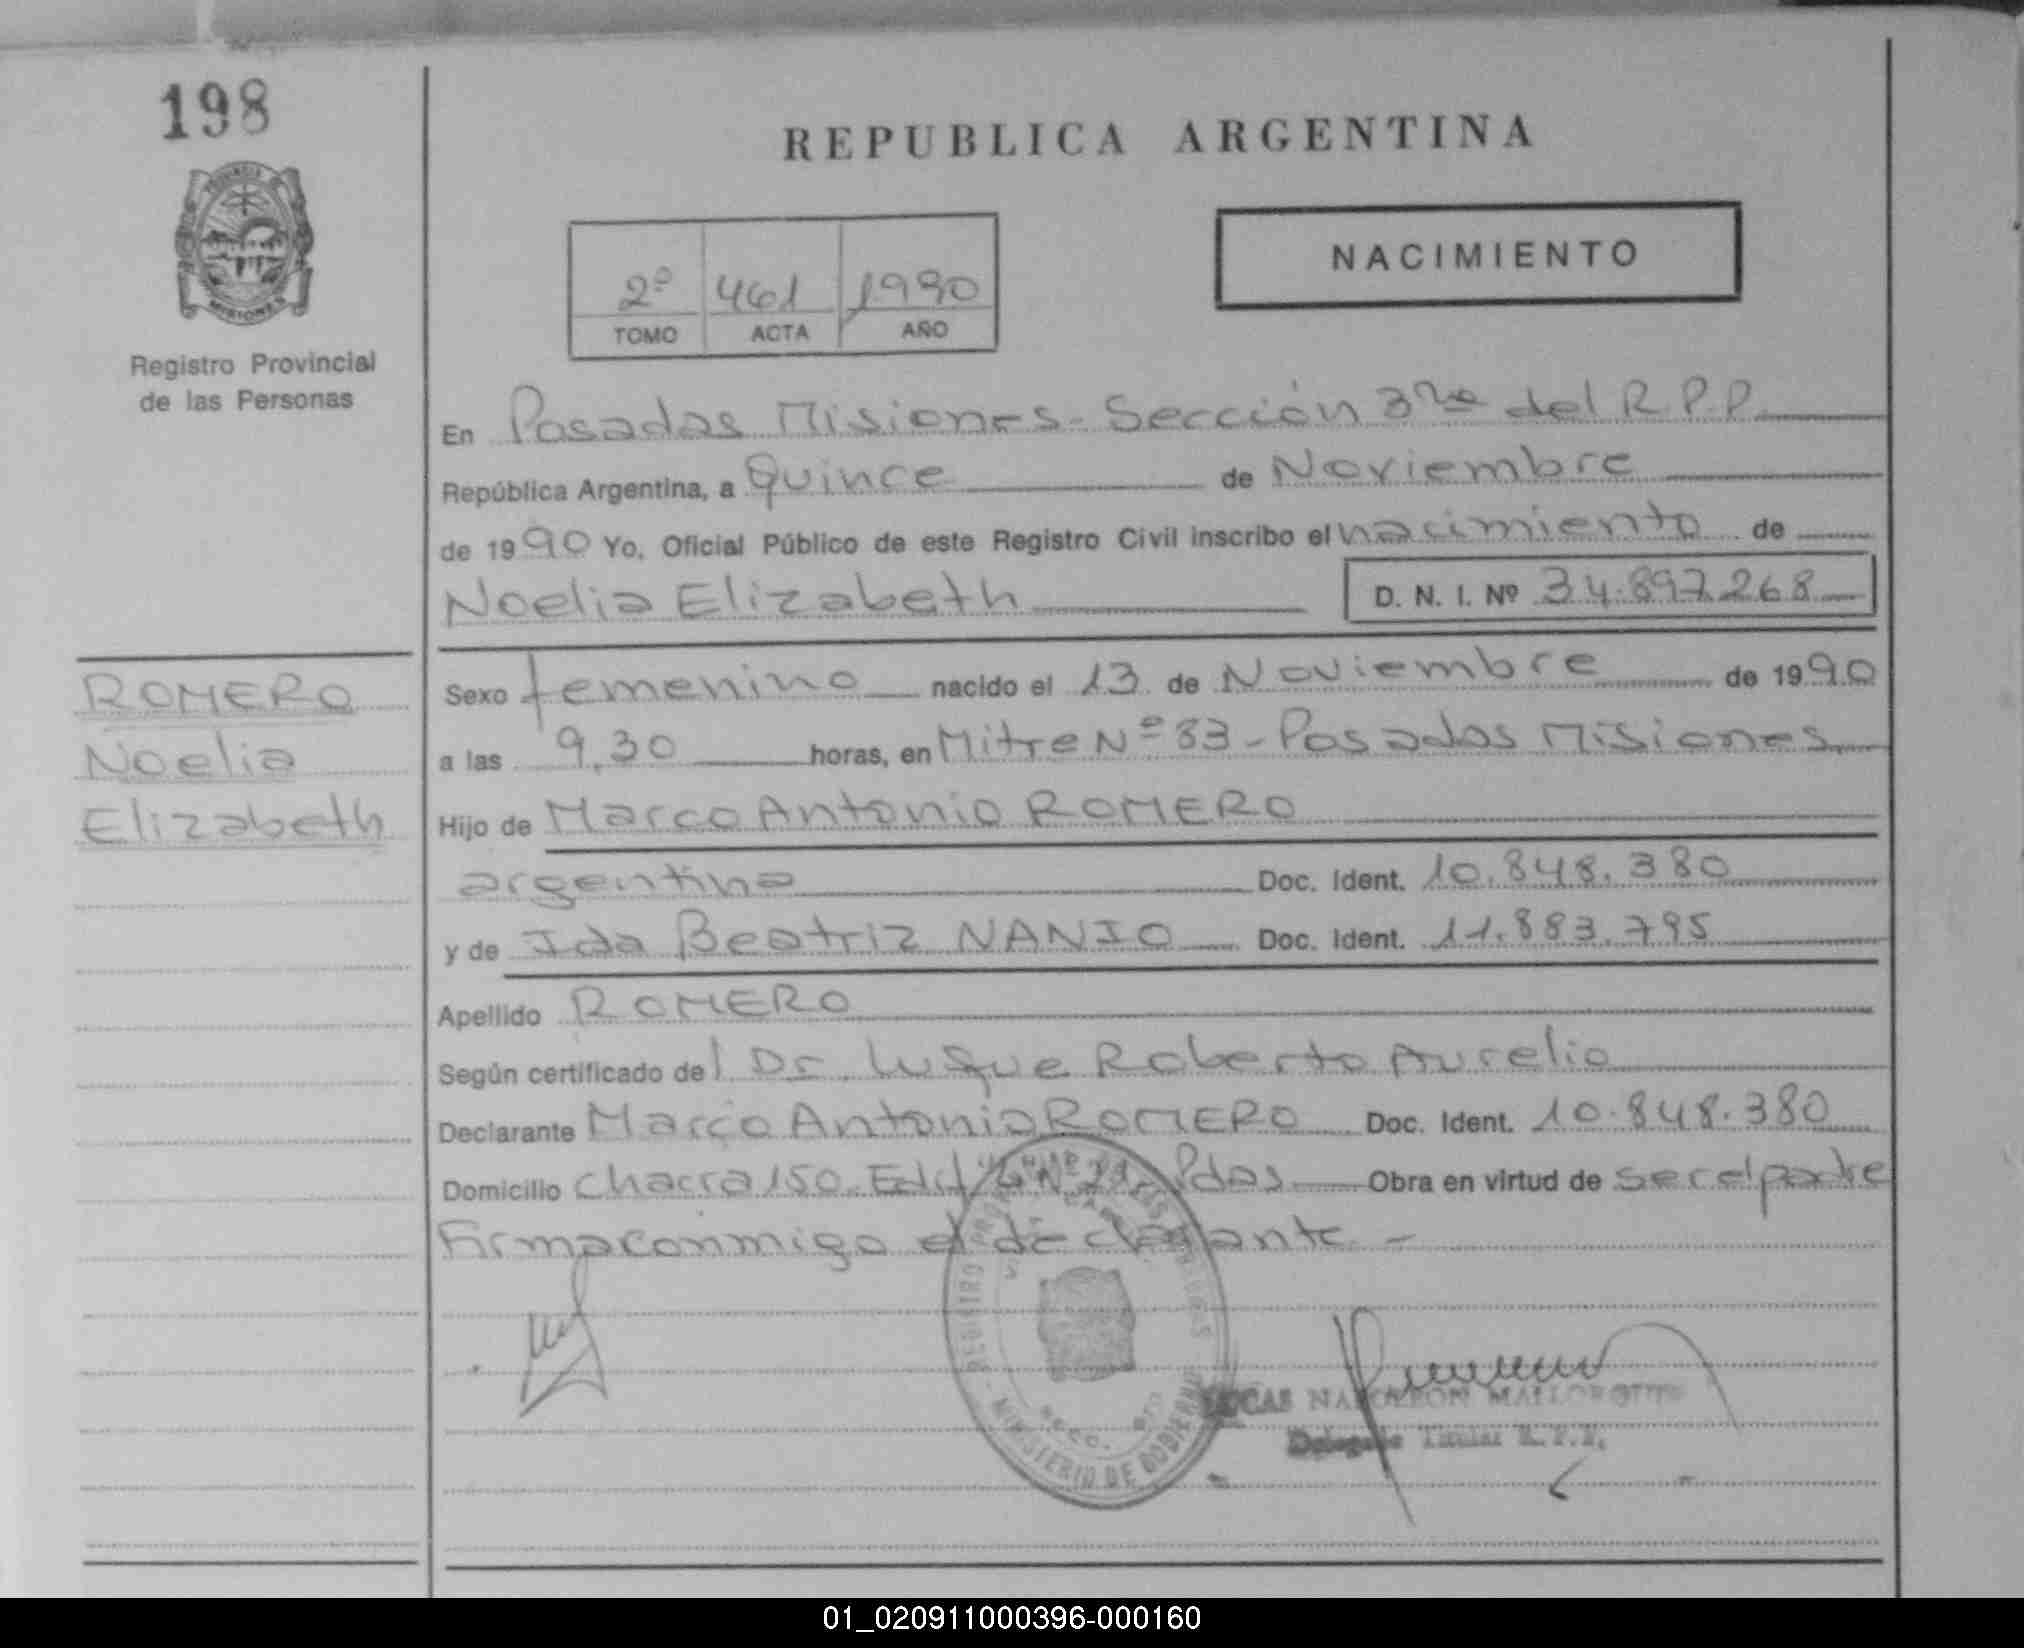 198
PROVINCIA DE
MISIONES
Registro Provincial
de las Personas
REPUBLICA ARGENTINA
2º 461 1990
TOMO ACTA AÑO
NACIMIENTO
En Posadas Misiones - Sección 3ra del R.P.P.
República Argentina, a Quince de Noviembre
de 1990 Yo, Oficial Público de este Registro Civil inscribo el nacimiento de
Noelia Elizabeth D. N. I. Nº 34.897.268
ROMERO
Noelia
Elizabeth
Sexo femenino nacido el 13 de Noviembre de 1990
a las 9,30 horas, en Mitre Nº 83 - Posadas Misiones
Hijo de Marco Antonio ROMERO
argentino Doc. Ident. 10.848.380
y de Ida Beatriz NANIO Doc. Ident. 11.883.795
Apellido ROMERO
Según certificado del Dr. Luque Roberto Aurelio
Declarante Marco Antonio ROMERO Doc. Ident. 10.848.380
Domicilio Chacra 150 Edif Nº 21 Pdas Obra en virtud de ser el padre
Firma conmigo el declarante -
MINISTERIO DE GOBIERNO
LUCAS NAPOLEON
Delegado Titular R. P. P.
01_020911000396-000160